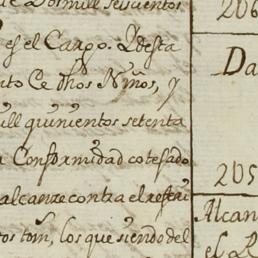 Dosmill seiscientos
es el Cargo. Y desta
Ce dhos Niños, y
quinientos setenta
Conformidad cotesado
alcanze contra el restai
tom, los que siendo del
206
Da
205
Alcan
el